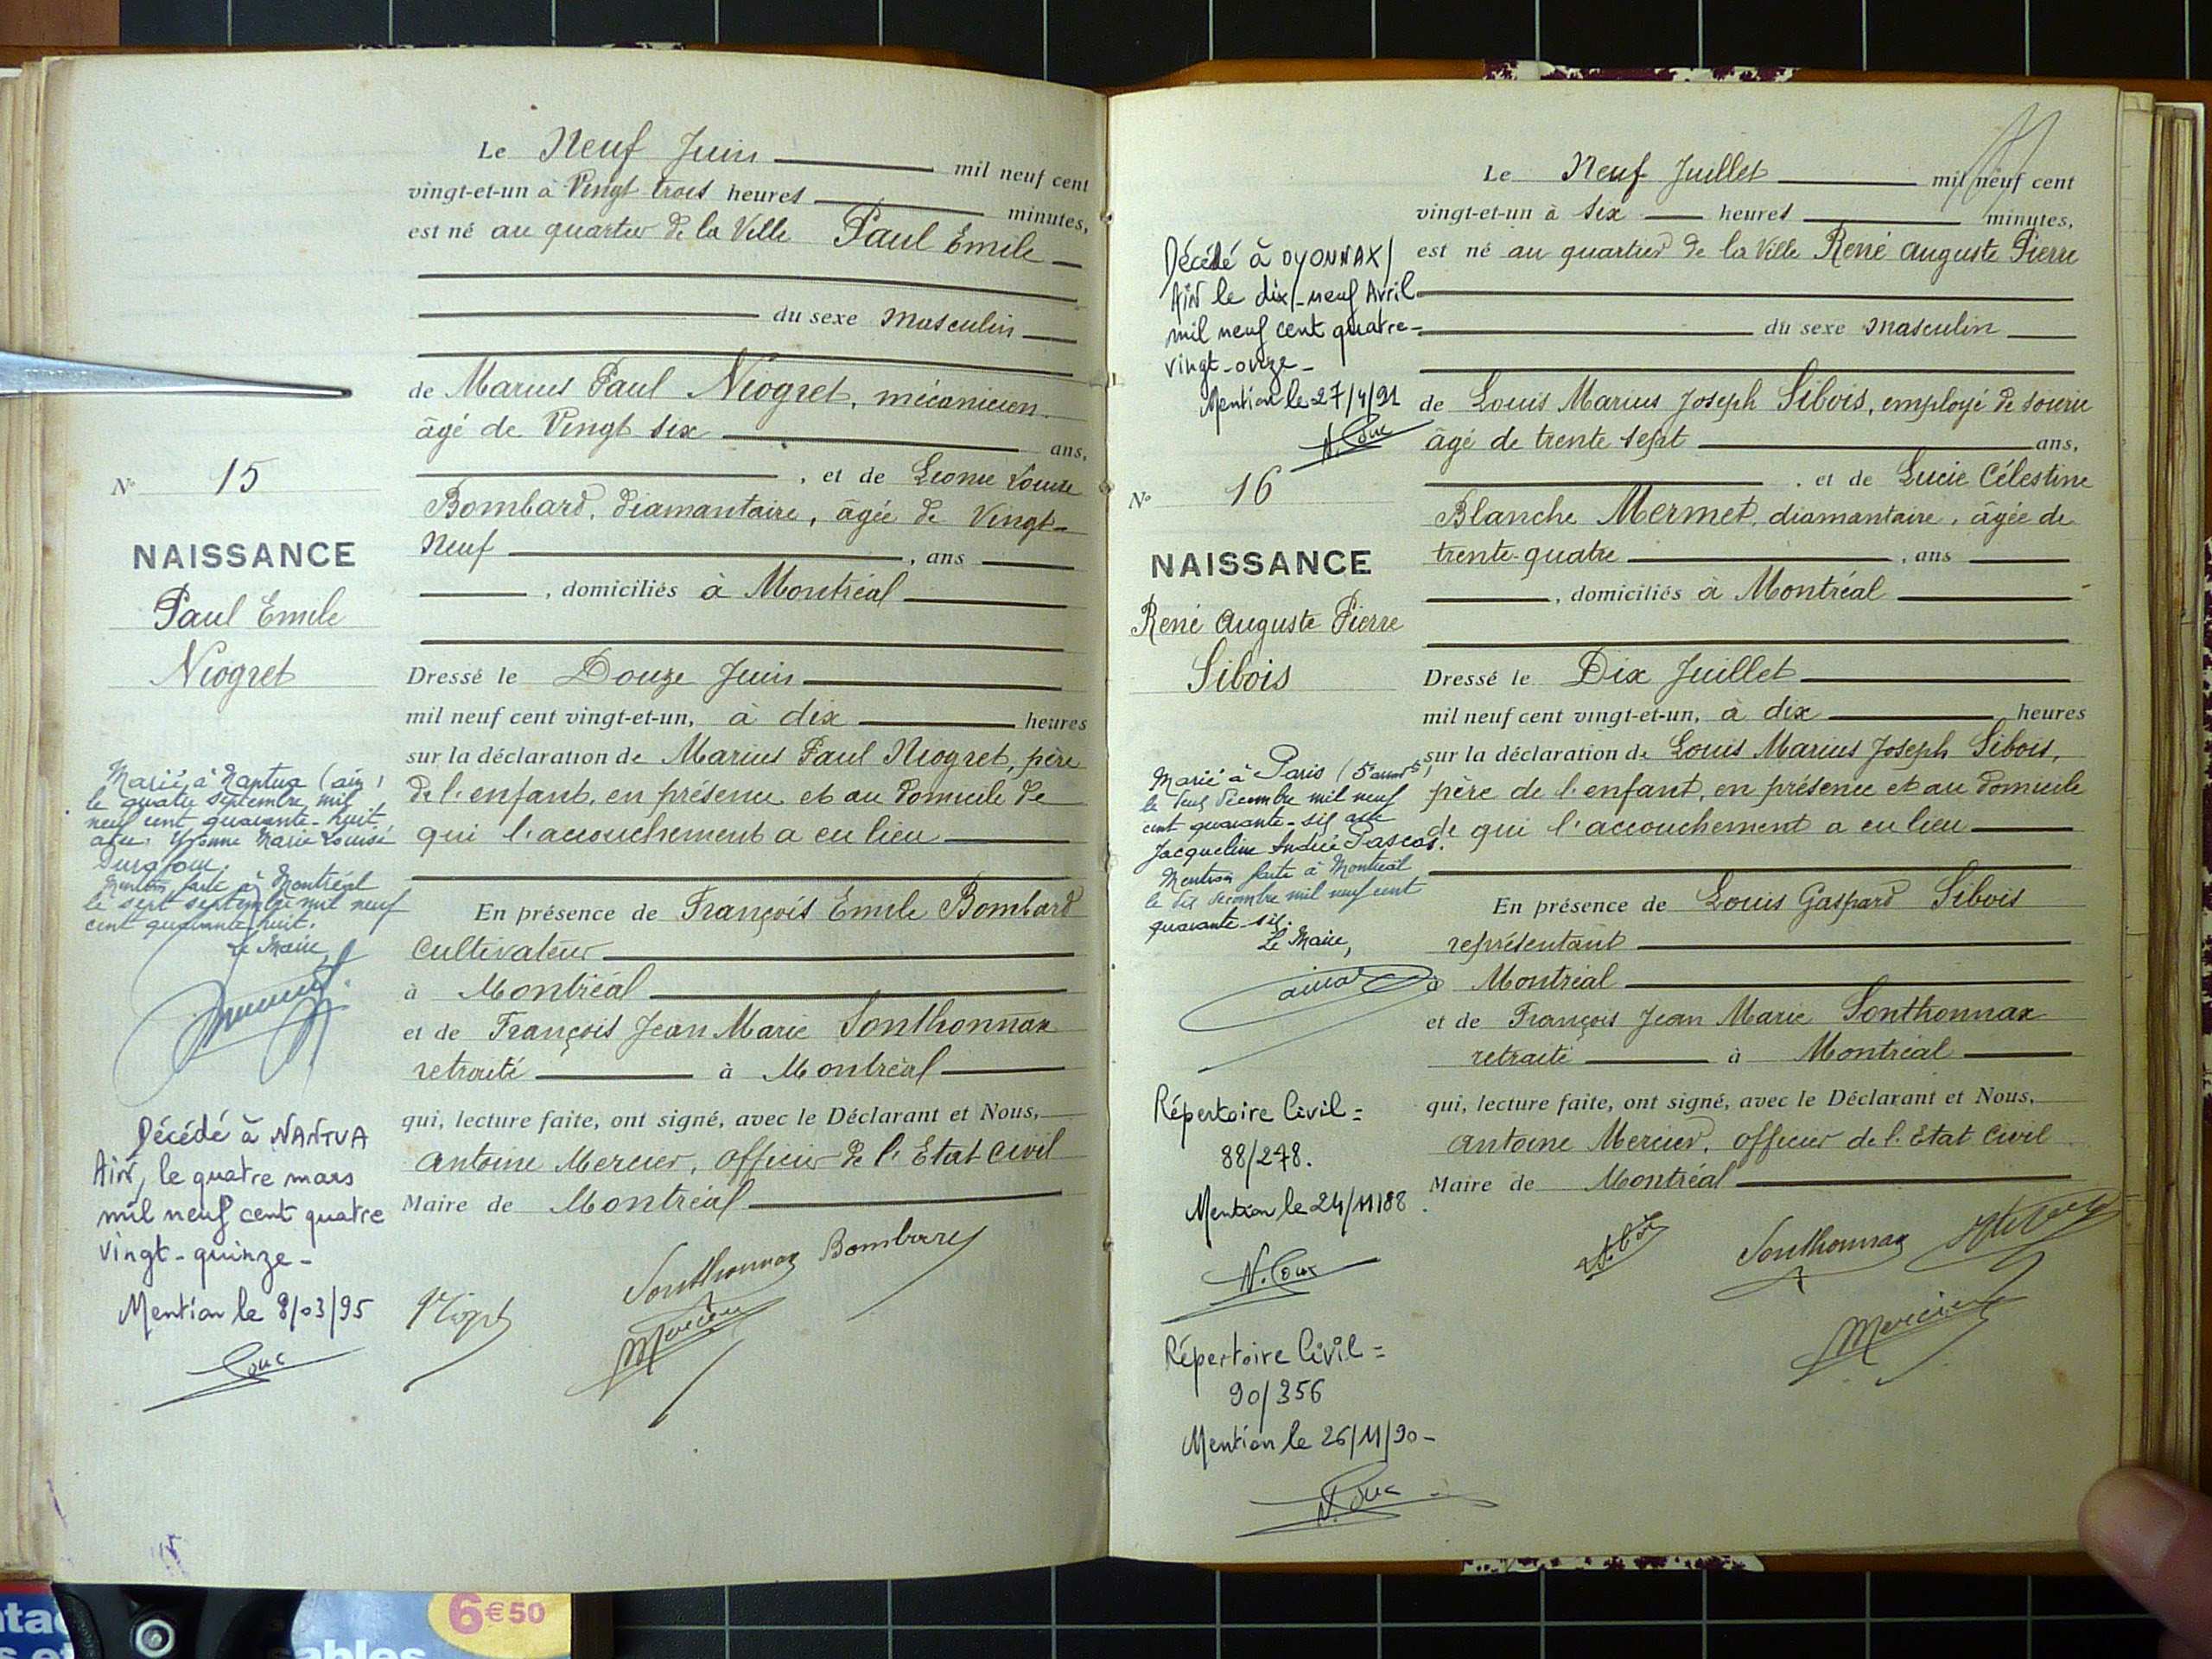 Le Neuf Juin mil neuf cent
vingt-et-un à Vingt trois heures minutes,
est né au quartier de la Ville Paul Emile
du sexe masculin
de Marius Paul Niogret, mécanicien
âgé de Vingt six ans,
, et de Leonie Louise
Bombard, diamantaire, âgée de Vingt-
Neuf , ans
, domiciliés à Montréal
Dressé le Douze Juin
mil neuf cent vingt-et-un, à dix heures
sur la déclaration de Marius Paul Niogret, père
de l'enfant, en présence et au domicile de
qui l'accouchement a eu lieu
En présence de François Emile Bombard
Cultivateur
à Montréal
et de François Jean Marie Sonthonnax
retraité à Montréal
qui, lecture faite, ont signé, avec le Déclarant et Nous,
Antoine Mercier, Officier de l'Etat Civil
Maire de Montréal
Sonthonnax Bombard
Niogret
Mercier
N° 15
NAISSANCE
Paul Emile
Niogret
Marié à Nantua (ain)
le quatre septembre mil
neuf cent quarante-huit
avec Yvonne Marie Louise
Mention faite à Montréal
le sept septembre mil neuf
cent quarante huit.
Le Maire,
Décédé à NANTUA
AIN, le quatre mars
mil neuf cent quatre
vingt-quinze-
Mention le 8/03/95
Le Neuf Juillet mil neuf cent
vingt-et-un à six heures minutes,
est né au quartier de la Ville René Auguste Pierre
du sexe masculin
de Louis Marius Joseph Sibois, employé de soierie
âgé de trente sept ans,
, et de Lucie Célestine
Blanche Mermet, diamantaire, âgée de
trente-quatre , ans
, domiciliés à Montréal
Dressé le Dix Juillet
mil neuf cent vingt-et-un, à dix heures
sur la déclaration de Louis Marius Joseph Sibois,
père de l'enfant, en présence et au domicile
de qui l'accouchement a eu lieu
En présence de Louis Gaspard Sibois
représentant
à Montréal
et de François Jean Marie Sonthonnax
retraité à Montréal
qui, lecture faite, ont signé, avec le Déclarant et Nous,
Antoine Mercier, Officier de l'Etat Civil
Maire de Montréal
Sonthonnax
Mercier
Décédé à OYONNAX
AIN le dix-neuf Avril
mil neuf cent quatre-
vingt-onze-
Mention le 27/4/91
N° 16
NAISSANCE
René Auguste Pierre
Sibois
Marié à Paris (5e arrt)
décembre mil neuf
cent quarante-six avec
Jacqueline Andrée Pascas.
Mention faite à Montréal
le dix décembre mil neuf cent
quarante-six.
Le Maire,
Répertoire Civil =
88/278.
Mention le 24/11/88.
Répertoire Civil =
90/356
Mention le 26/11/90-
6€50
ables